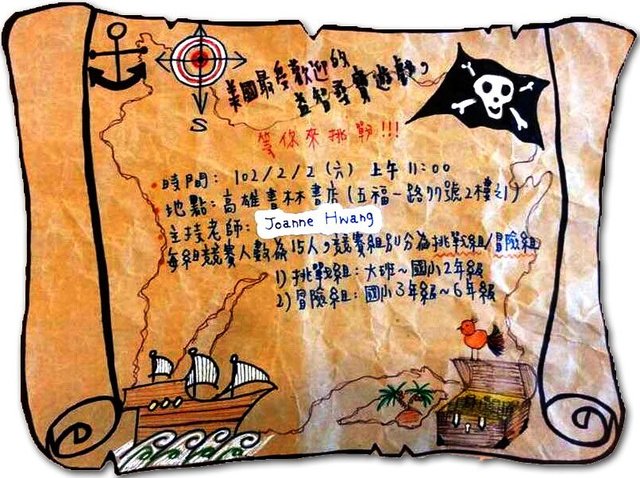 美國最受歡迎的
益智尋寶遊戲，
等你來挑戰!!!
S
時間：102/2/2 (六) 上午 11:00
地點：高雄書林書店 (五福一路77號2樓之1)
主持老師：Joanne Hwang
每組競賽人數為15人，競賽組別分為挑戰組/冒險組
1) 挑戰組：大班～國小2年級
2) 冒險組：國小3年級～6年級